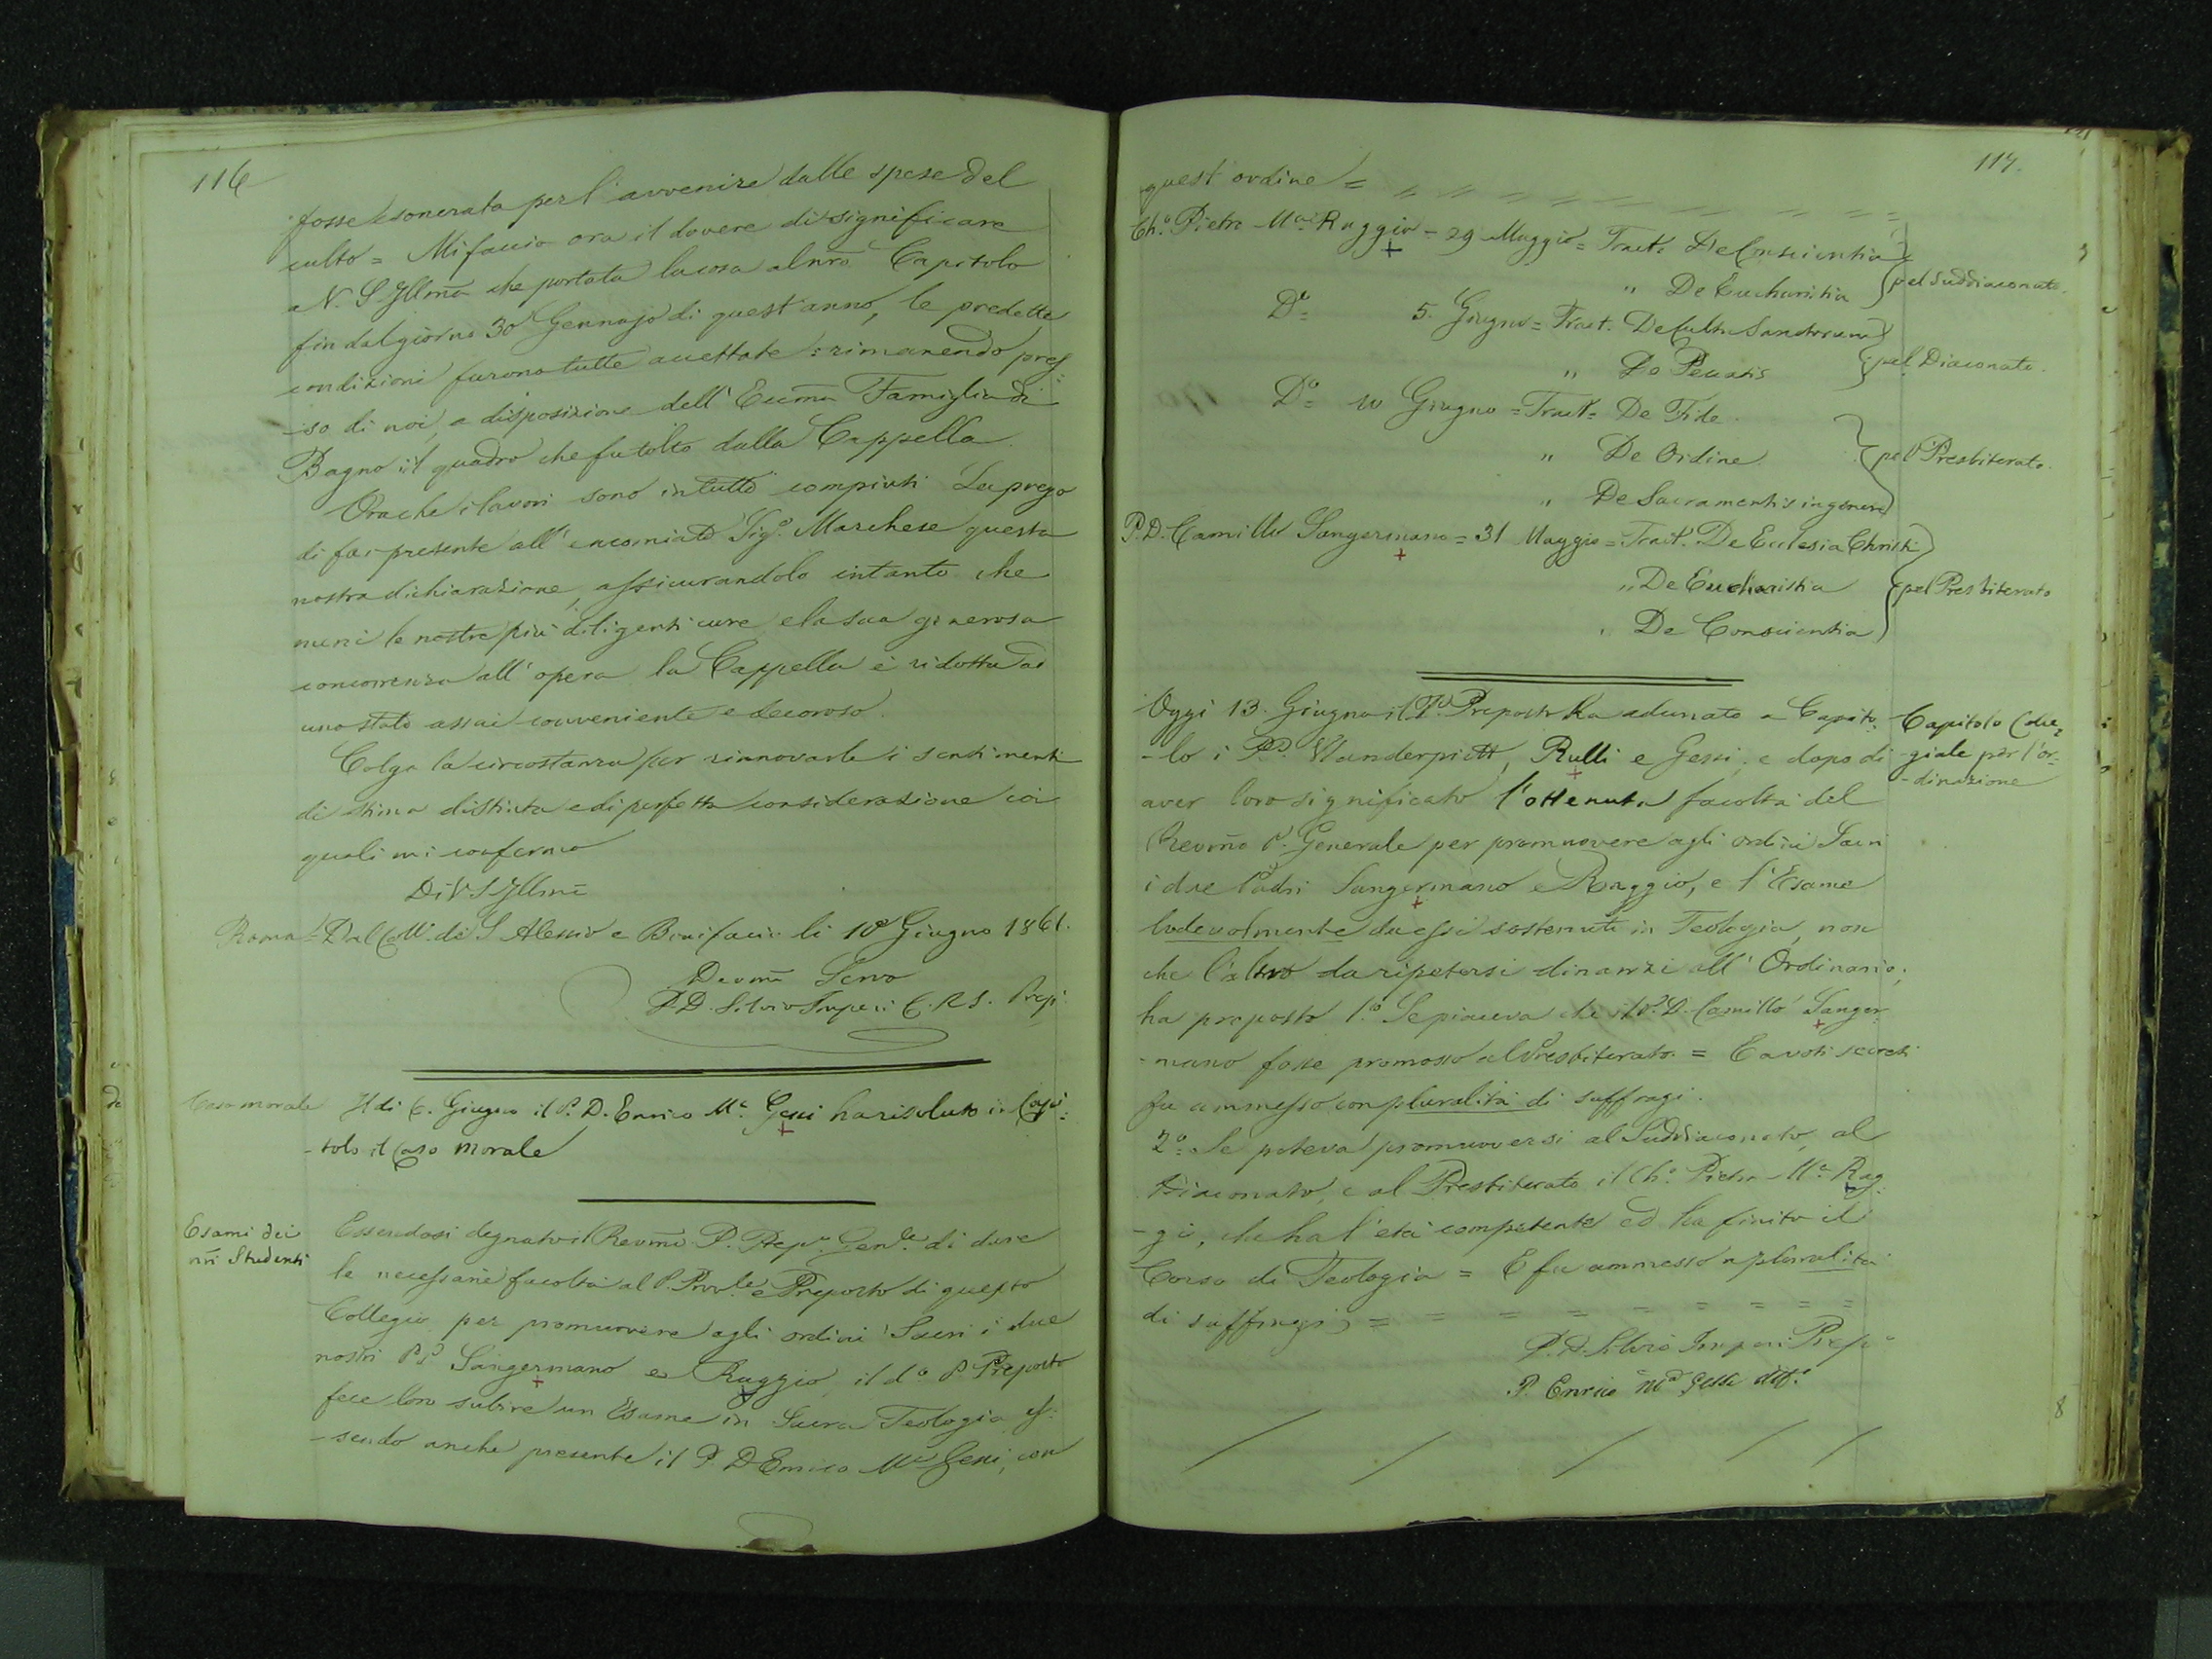 116
fosse esonerata per l'avvenire dalle spese del
culto = Mi faccio ora il dovere di significare
a V. S. Illma che portata la cosa al nro Capitolo
fin dal giorno 30 Gennajo di quest'anno, le predette
condizioni furono tutte accettate: rimanendo pres=
-so di noi, a disposizione dell'Eccma Famiglia di
Bagno il quadro che fu tolto dalla Cappella.
Ora che i lavori sono in tutto compiuti La prego
di far presente all'encomiato Sigr. Marchese questa
nostra dichiarazione, assicurandolo intanto che
mercè le nostre più diligenti cure e la sua generosa
concorrenza all'opera la Cappella è ridotta ad
uno stato assai conveniente e decoroso.
Colgo la circostanza per rinnovarle i sentimenti
di stima distinta e di perfetta considerazione coi
quali mi confermo
Di V S Illma
Roma = Dal Coll. di S Alessio e Bonifacio li 10 Giugno 1861.
Devmo Servo
P. D. Silvio Imperi C. R. S. Prepo
Caso morale
Il di 6. Giugno il P. D. Enrico Ma Gessi ha risoluto in Capi=
-tolo il Caso Morale
Esami dei
nri Studenti
Essendosi degnato il Revmo P. Prepo Genle di dare
le necessarie facoltà al P. Provle e Preposto di questo
Collegio per promuovere agli ordini Sacri i due
nostri PP Sangermano e Raggio, il do P. Preposto
fece loro subire un Esame in Sacra Teologia es=
-sendo anche presente il P. D Enrico Ma Gessi, con
117.
quest'ordine =
Cho Pietro Ma Raggio = 29 Maggio = Tract. De Conscientia
" De Eucharistia } pel Suddiaconato.
Do = 5. Giugno = Tract. De Cultu Sanctorum
" De Peccatis } pel Diaconato.
Do = 10 Giugno = Tract = De Fide.
" De Ordine. } pel Presbiterato.
" De Sacramentis in genere
P. D. Camillo Sangermano = 31 Maggio = Tract. De Ecclesia Christi
" De Eucharistia } pel Presbiterato
" De Conscientia
Oggi 13. Giugno il P. Preposto ha adunato a Capito
-lo i PP. Wanderpiett, Rulli e Gessi; e dopo di
aver loro significato l'ottenuta facoltà del
Revmo P. Generale per promuovere agli ordini Sacri
i due Padri Sangermano e Raggio, e l'Esame
lodevolmente da essi sostenuto in Teologia, non
che l'altro da ripetersi dinanzi all'Ordinario,
ha proposto 1.o Se piaceva che il P. D. Camillo Sanger=
-mano fosse promosso al Presbiterato. = E a voti secreti
fu ammesso con pluralità di suffragi.
2o Se poteva promuoversi al Suddiaconato, al
Diaconato, e al Presbiterato il Cho Pietro Ma Rag=
-gio, che ha l'età competente ed ha finito il
Corso di Teologia = E fu ammesso a pluralità
di suffragi =
Capitolo Colle=
-giale per l'or=
-dinazione
P. D. Silvio Imperi Prepo
P. Enrico Ma Gessi
8